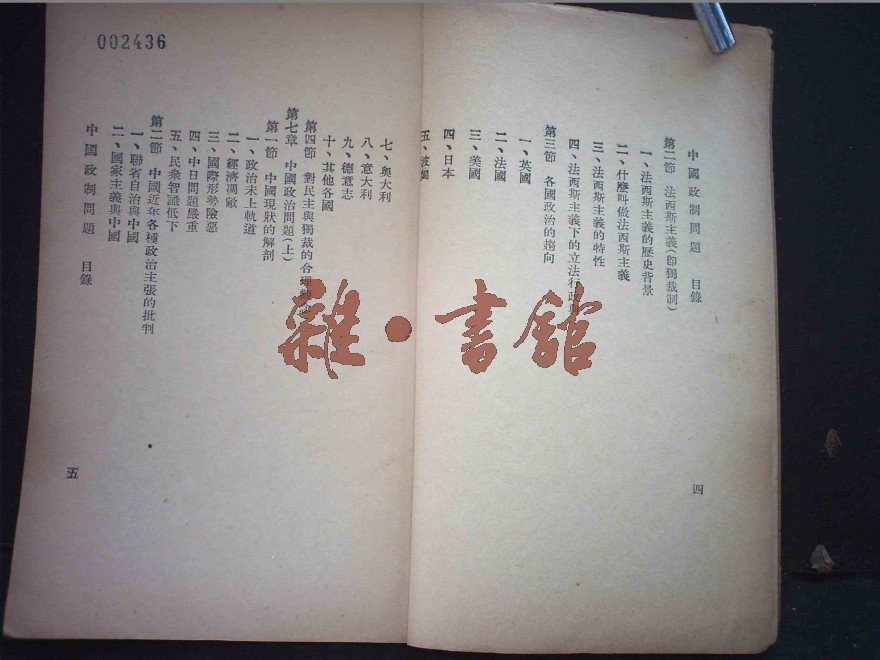 中國政制問題　目錄
第二節　法西斯主義(即獨裁制)
一、法西斯主義的歷史背景
二、什麼叫做法西斯主義
三、法西斯主義的特性
四、法西斯主義下的立法行政
第三節　各國政治的趨向
一、英國
二、法國
三、美國
四、日本
五、波蘭
四
七、奧大利
八、意大利
九、德意志
十、其他各國
第四節　對民主與獨裁的合理
第七章　中國政治問題(上)
第一節　中國現狀的解剖
一、政治未上軌道
二、經濟凋敝
三、國際形勢險惡
四、中日問題嚴重
五、民衆智識低下
第二節　中國近年各種政治主張的批判
一、聯省自治與中國
二、國家主義與中國
中國政制問題　目錄
五
002436
雜·書館